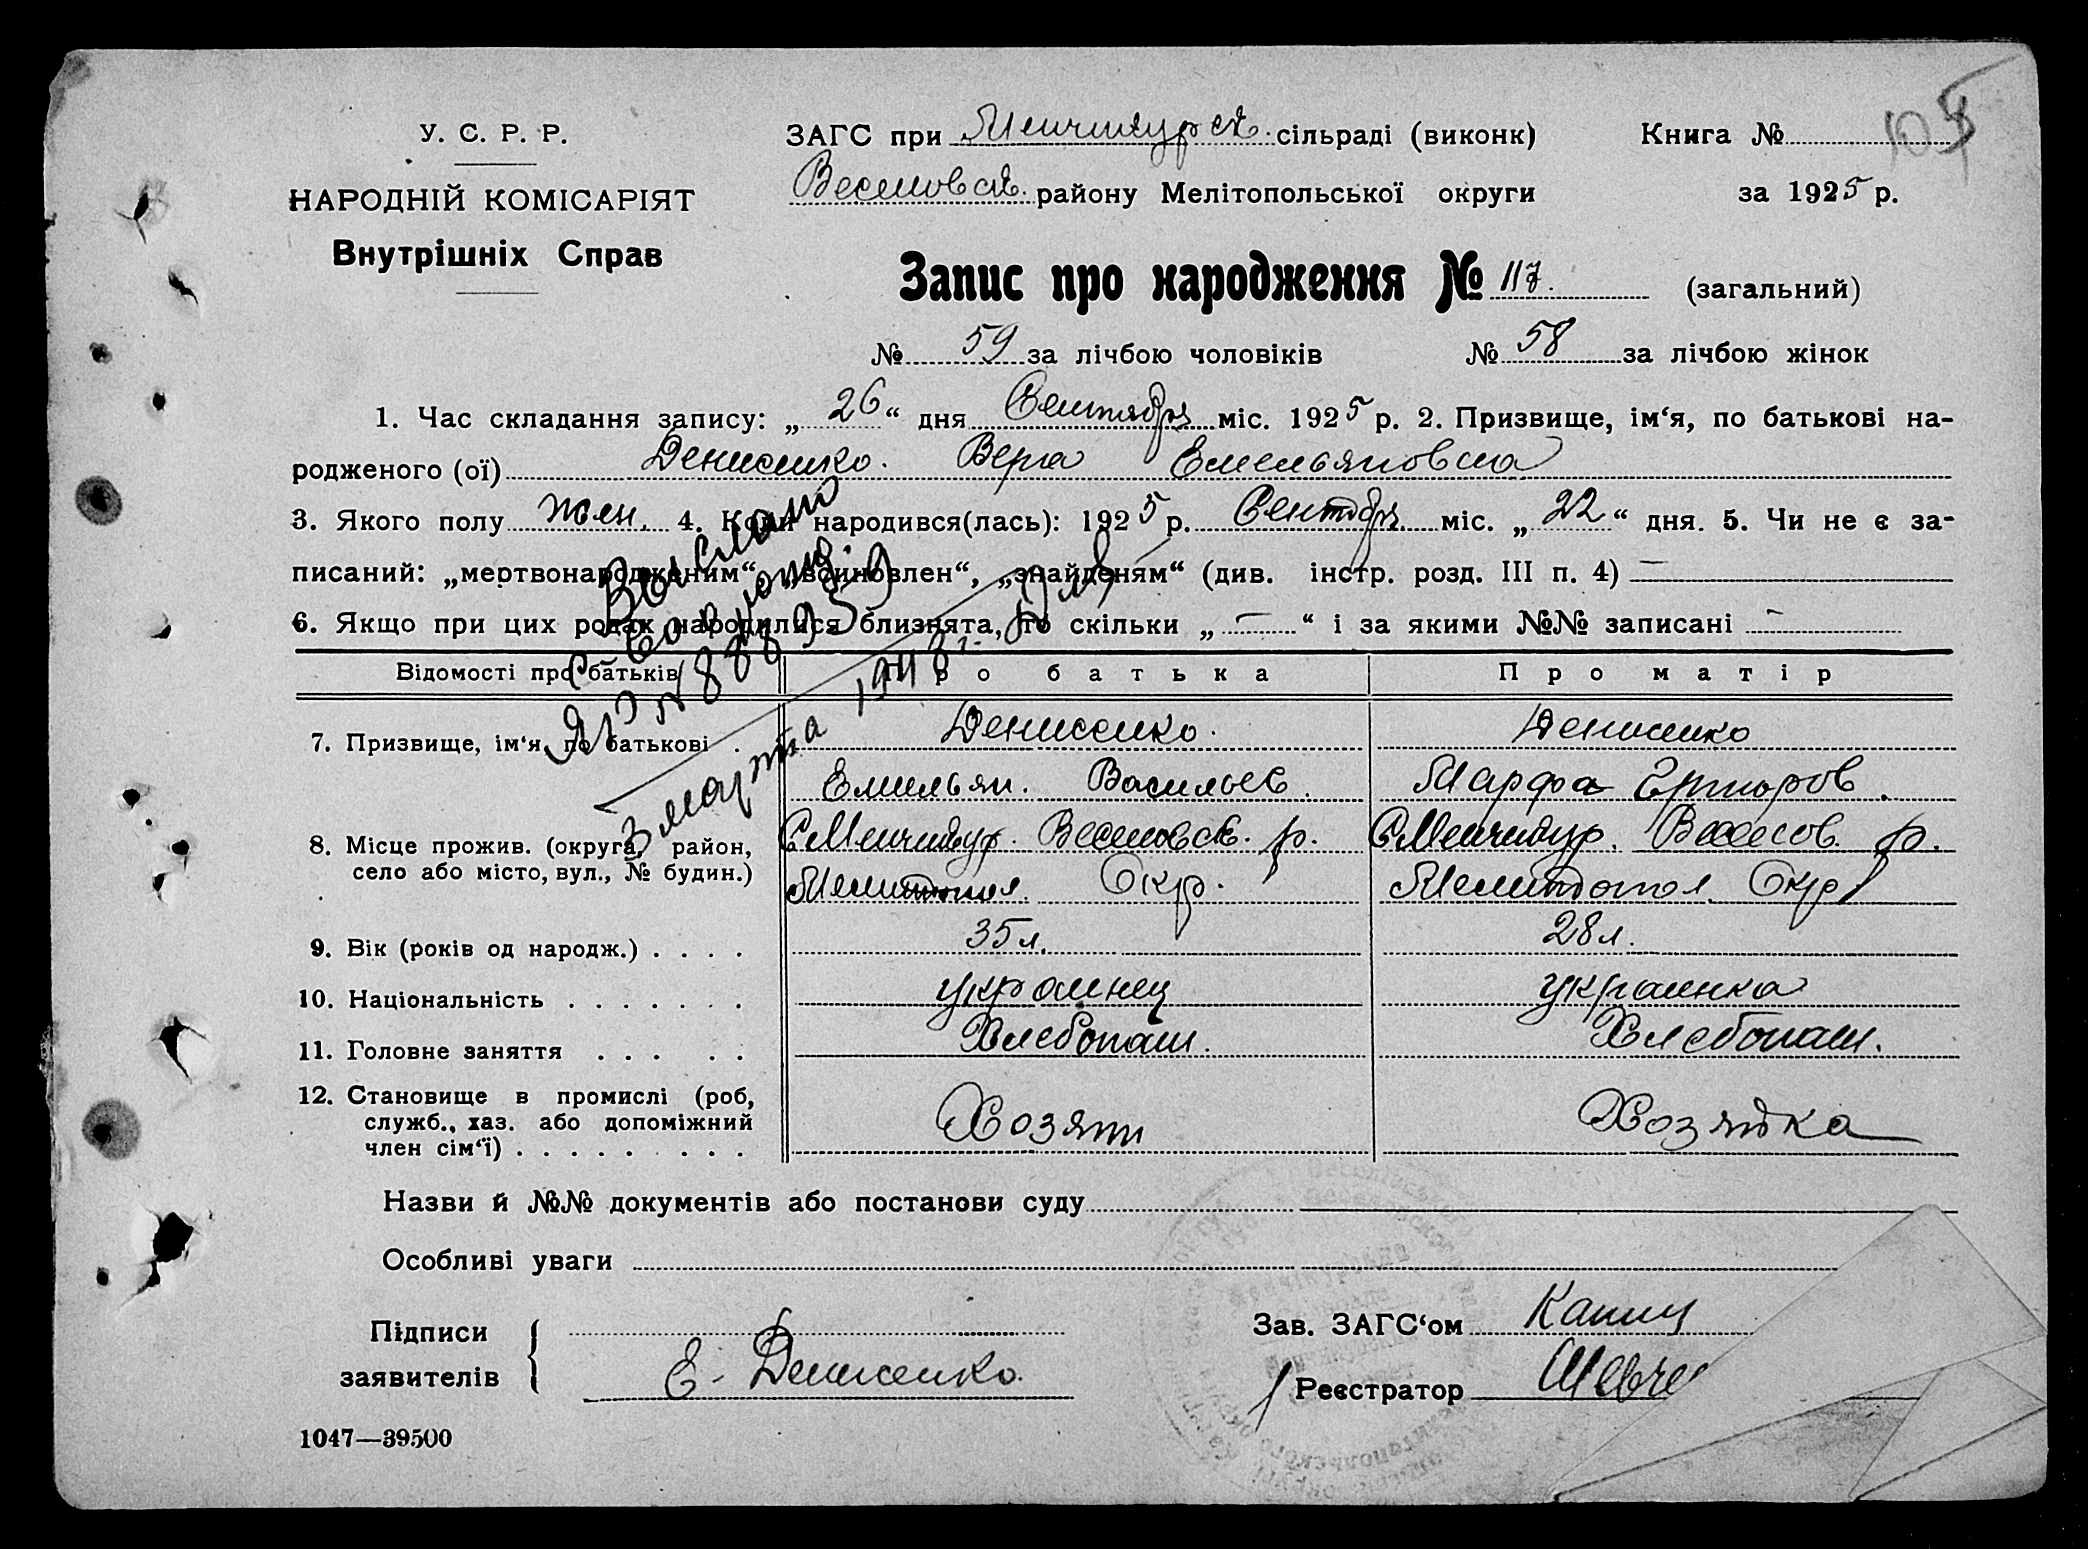 У. С. Р. Р.
НАРОДНІЙ КОМІСАРІЯТ
Внутрішніх Справ
ЗАГС при Менчикурск. сільраді (виконк)
Книга №
Веселовск. району Мелітопольської округи
за 1925 р.
Запис про народження № 117. (загальний)
№ 59 за лічбою чоловіків № 58 за лічбою жінок
1. Час складання запису: „26“ дня Сентября міс. 1925 р. 2. Призвище, ім‘я, по батькові на-
родженого (ої) Денисенко. Вера Емельяновна
3. Якого полу жен. 4. Коли народився(лась): 1925 р. Сентябр. міс. „22“ дня. 5. Чи не є за-
писаний: „мертвонародженим“, „всиновлен“, „знайденям“ (див. інстр. розд. III п. 4) —
6. Якщо при цих родах народилися близнята, то скільки „—“ і за якими №№ записані —
Выслано
ЯР № 888959
3 марта 1948 г.
Відомості про батьків
Про батька
Про матір
7. Призвище, ім‘я, по батькові .
Денисенко. Денисенко
Емельян. Васильев. Марфа Егоров.
8. Місце прожив. (округа, район,
село або місто, вул., № будин.)
С Менчикур. Веселовск. р. С Менчикур. Веселов. р.
Мелитопол. Окр. Мелитопол. Окр
9. Вік (років од народж.) . . . . 35 л. 28 л.
10. Національність . . . . . . . украинец украинка
11. Головне заняття . . . . . Хлебопаш. Хлебопаш.
12. Становище в промислі (роб,
служб., хаз. або допоміжний
член сім‘ї) . . . . . . . . . Хозяин Хозяйка
Назви й №№ документів або постанови суду
Особливі уваги
Підписи
заявителів
Е. Денисенко.
Зав. ЗАГС‘ом
Реєстратор Шевче
1047—39500